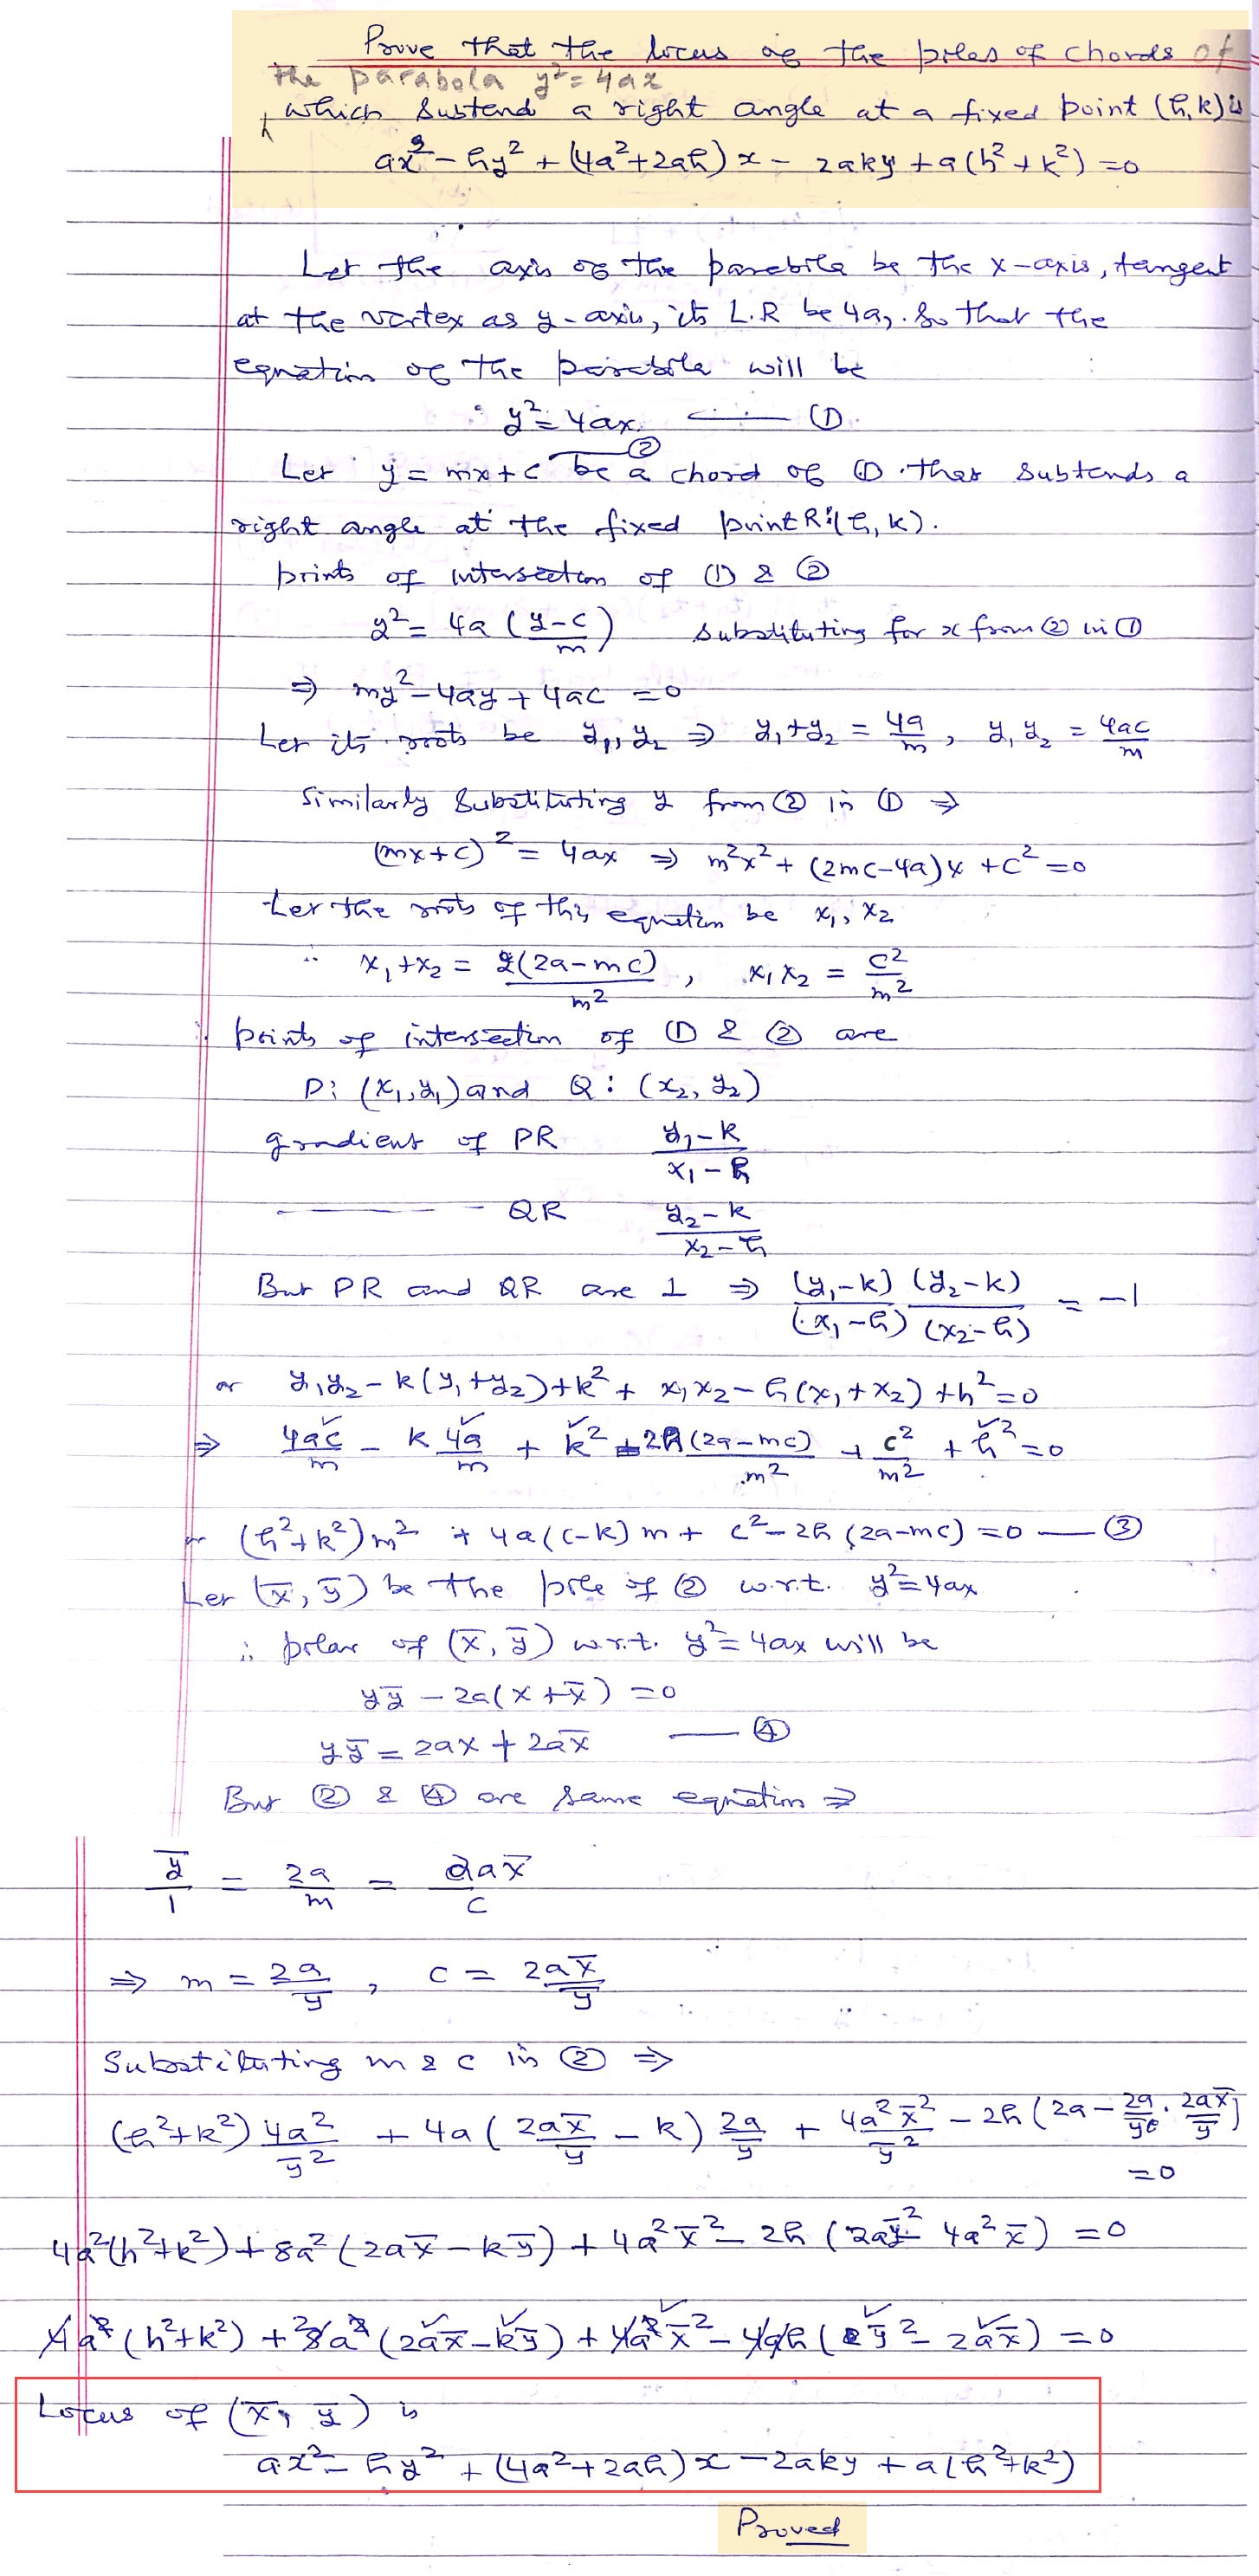 Prove that the locus of the poles of chords of
the parabola y² = 4ax
which sustend a right angle at a fixed point (h, k) is
ax² - hy² + (4a² + 2ah)x - 2aky + a(h² + k²) = 0
Let the axis of the parabola be the x-axis, tangent
at the vertex as y-axis, its L.R be 4a, so that the
equation of the parabola will be
y² = 4ax —— ①
Let y = mx + c —— ② be a chord of ① that subtends a
right angle at the fixed point R:(h, k).
points of intersection of ① & ②
y² = 4a ((y-c)/m) substituting for x from ② in ①
⇒ my² - 4ay + 4ac = 0
Let its roots be y₁, y₂ ⇒ y₁ + y₂ = 4a/m, y₁ y₂ = 4ac/m
Similarly substituting y from ② in ① ⇒
(mx + c)² = 4ax ⇒ m²x² + (2mc - 4a)x + c² = 0
Let the roots of this equation be x₁, x₂
∴ x₁ + x₂ = 2(2a - mc)/m², x₁ x₂ = c²/m²
∴ points of intersection of ① & ② are
P: (x₁, y₁) and Q: (x₂, y₂)
gradient of PR (y₁ - k)/(x₁ - h)
——— QR (y₂ - k)/(x₂ - h)
But PR and QR are ⊥ ⇒ (y₁ - k)/(x₁ - h) (y₂ - k)/(x₂ - h) = -1
or y₁y₂ - k(y₁ + y₂) + k² + x₁x₂ - h(x₁ + x₂) + h² = 0
⇒ 4ac/m - k 4a/m + k² - 2h(2a - mc)/m² + c²/m² + h² = 0
or (h² + k²)m² + 4a(c - k)m + c² - 2h(2a - mc) = 0 — ③
Let (x̄, ȳ) be the pole of ② w.r.t. y² = 4ax
∴ polar of (x̄, ȳ) w.r.t. y² = 4ax will be
yȳ - 2a(x + x̄) = 0
yȳ = 2ax + 2ax̄ —— ④
But ② & ④ are same equation ⇒
ȳ/1 = 2a/m = 2ax̄/c
⇒ m = 2a/ȳ, c = 2ax̄/ȳ
Substituting m & c in ② ⇒
(h² + k²) 4a²/ȳ² + 4a (2ax̄/ȳ - k) 2a/ȳ + 4a²x̄²/ȳ² - 2h (2a - 2a/ȳ · 2ax̄/ȳ)
= 0
4a²(h² + k²) + 8a²(2ax̄ - kȳ) + 4a²x̄² - 2h (2aȳ² - 4a²x̄) = 0
4a²(h² + k²) + 8a²(2ax̄ - kȳ) + 4a²x̄² - 4ah (ȳ² - 2ax̄) = 0
Locus of (x̄, ȳ) is
ax² - hy² + (4a² + 2ah)x - 2aky + a(h² + k²)
Proved